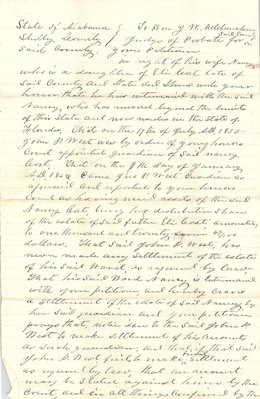 State of Alabama } To Hon J W.
Shelby County } Judge of Probate for
said County, your Petitioner
in right of his wife Nancy
who is a daughter of the late
said County and State dec'd shows unto your
honor that he has intermarried with the said
Nancy, who has moved beyond the limits
of this State and now resides in the State of
Florida. That on the 9th of July A.D. 1855
John P West was by order of your honors
Court appointed guardian of said Nancy
West. That on the 9th day of January
A.D. John P West Guardian as
aforesaid and reported to your honors
Court as having rec'd assets of the said
Nancy that being her distributive share
of the estate of said father the last amounting
to one thousand and twenty seven
dollars. That said John P. West, has
never made any settlement of the estate
of his said Ward as required by law.
That his said Ward Nancy is intermarried
with your petitioner and hereby craves
a settlement of the estate of said Nancy by
her said guardian and your petitioner
prays that, notice issue to the said John P
West to make settlement of his accounts
as such guardian, and that if that said
John P. West fail to make final settlement
as required by law, that an account
may be stated against him by the
Court, and in all things confirmed by the